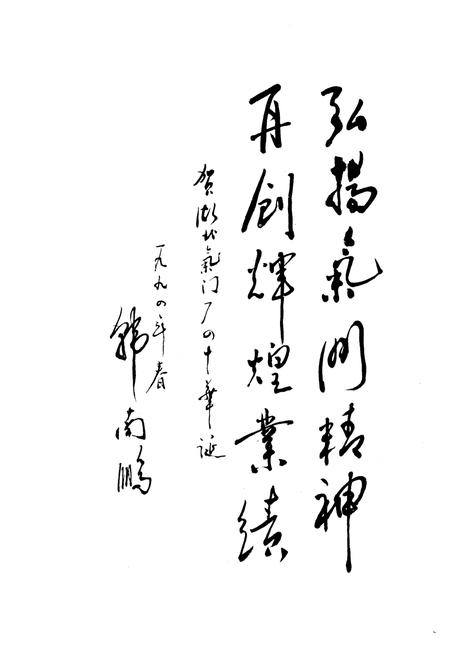 弘揚氣门精神
再創輝煌業績
贺湖北氣门厂四十華诞
一九九四年春
韩南鹏